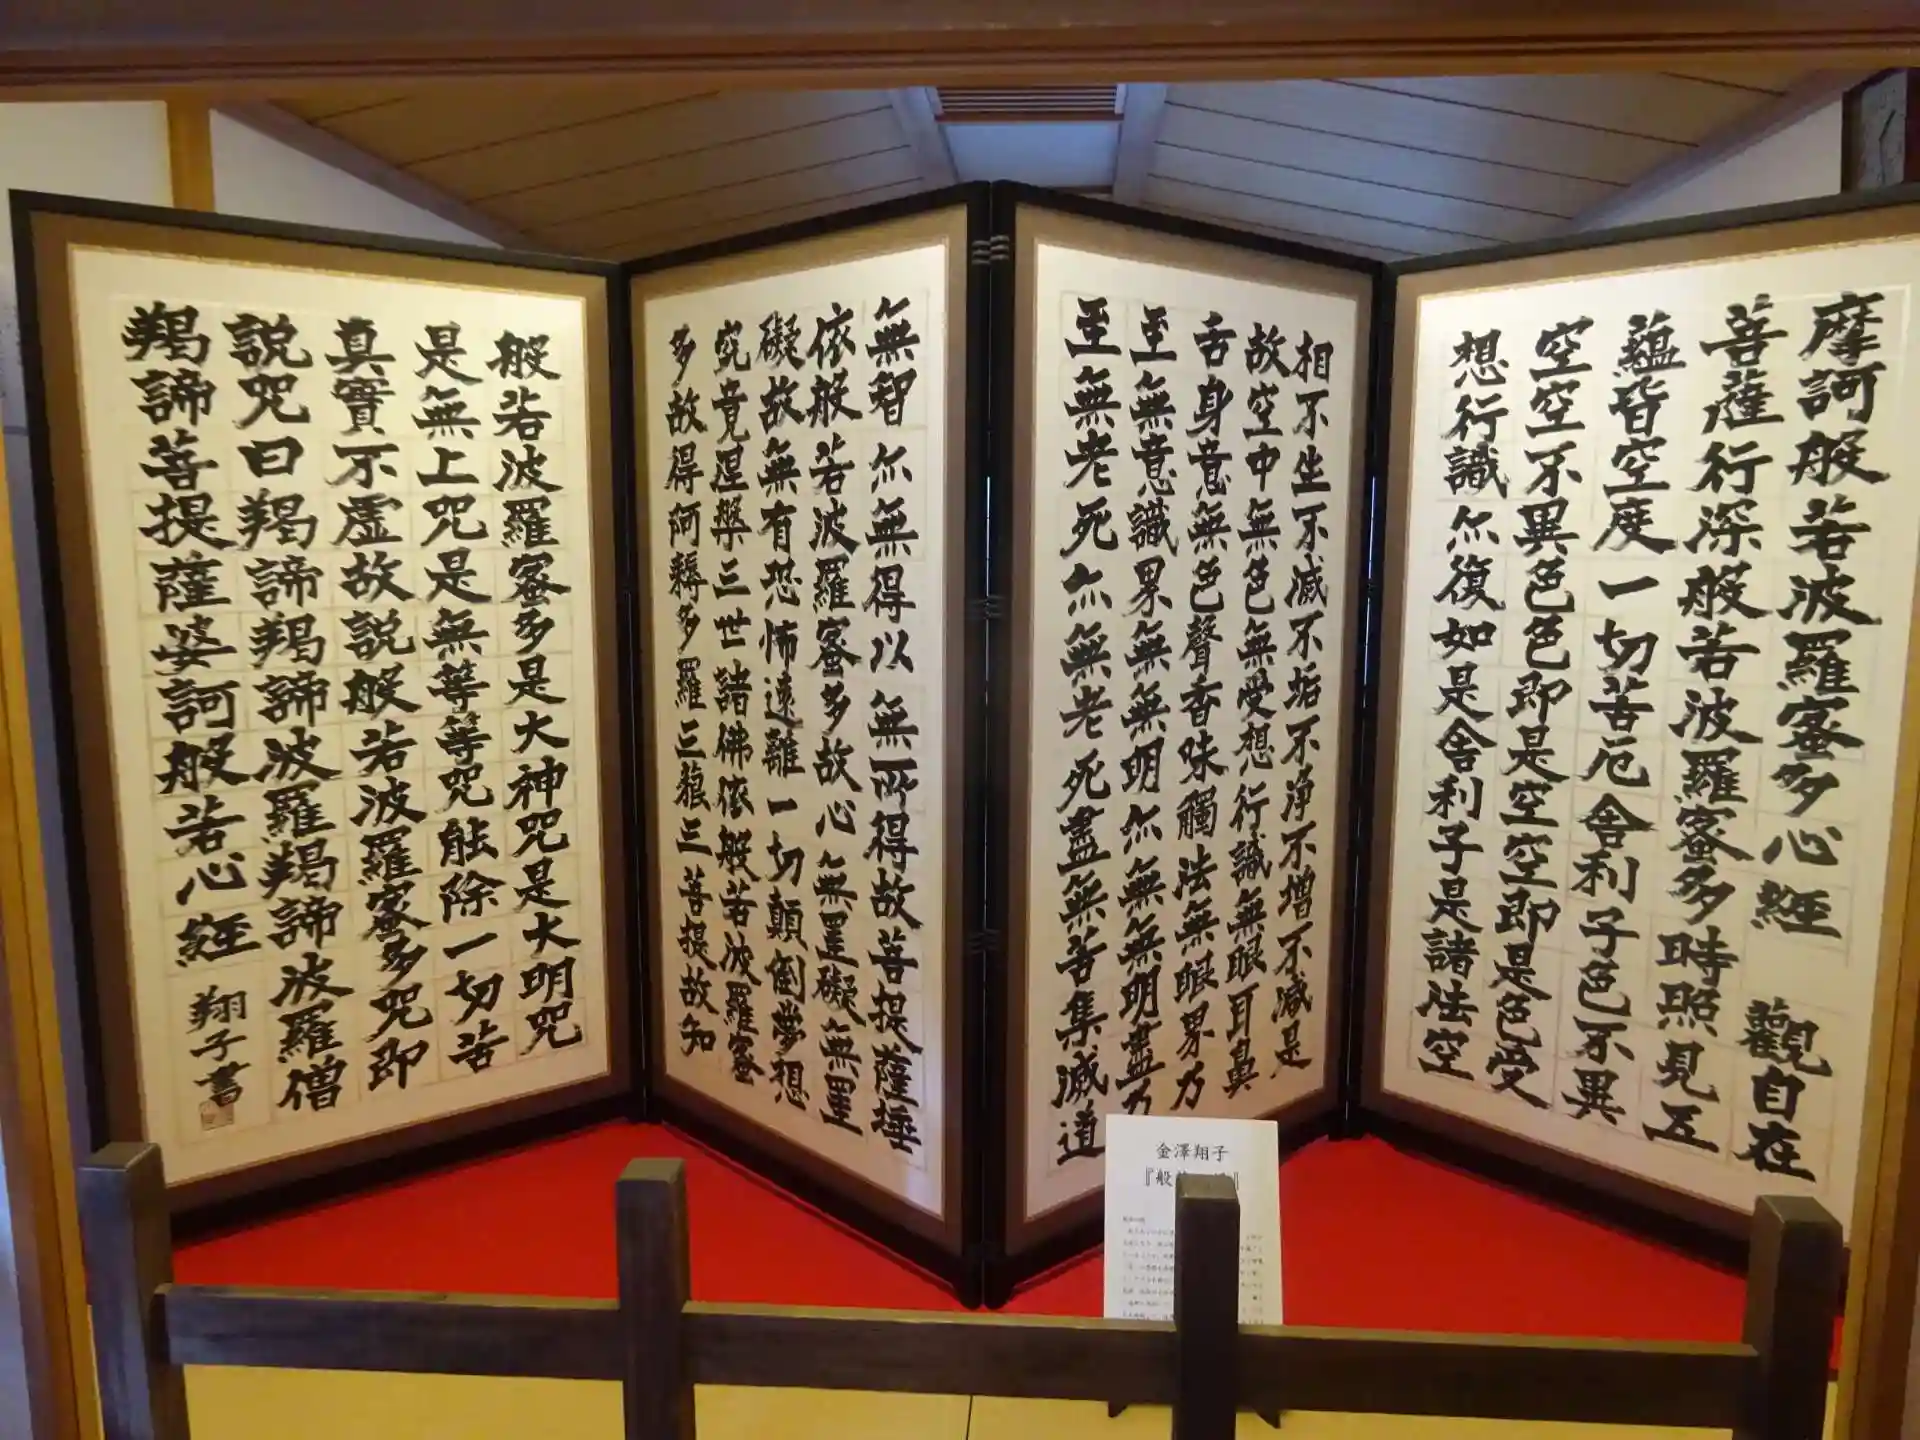 摩訶般若波羅蜜多心経　觀自在
菩薩行深般若波羅蜜多時照見五
蘊皆空度一切苦厄舎利子色不異
空空不異色色即是空空即是色受
想行識亦復如是舎利子是諸法空
相不生不滅不垢不浄不増不減是
故空中無色無受想行識無眼耳鼻
舌身意無色聲香味觸法無眼界乃
至無意識界無無明亦無無明盡乃
至無老死亦無老死盡無苦集滅道
無智亦無得以無所得故菩提薩埵
依般若波羅蜜多故心無罣礙無罣
礙故無有恐怖遠離一切顛倒夢想
究竟涅槃三世諸佛依般若波羅蜜
多故得阿耨多羅三藐三菩提故知
般若波羅蜜多是大神咒是大明咒
是無上咒是無等等咒能除一切苦
真實不虚故説般若波羅蜜多咒即
説咒曰羯諦羯諦波羅羯諦波羅僧
羯諦菩提薩婆訶般若心経　翔子書
金澤翔子
『般』